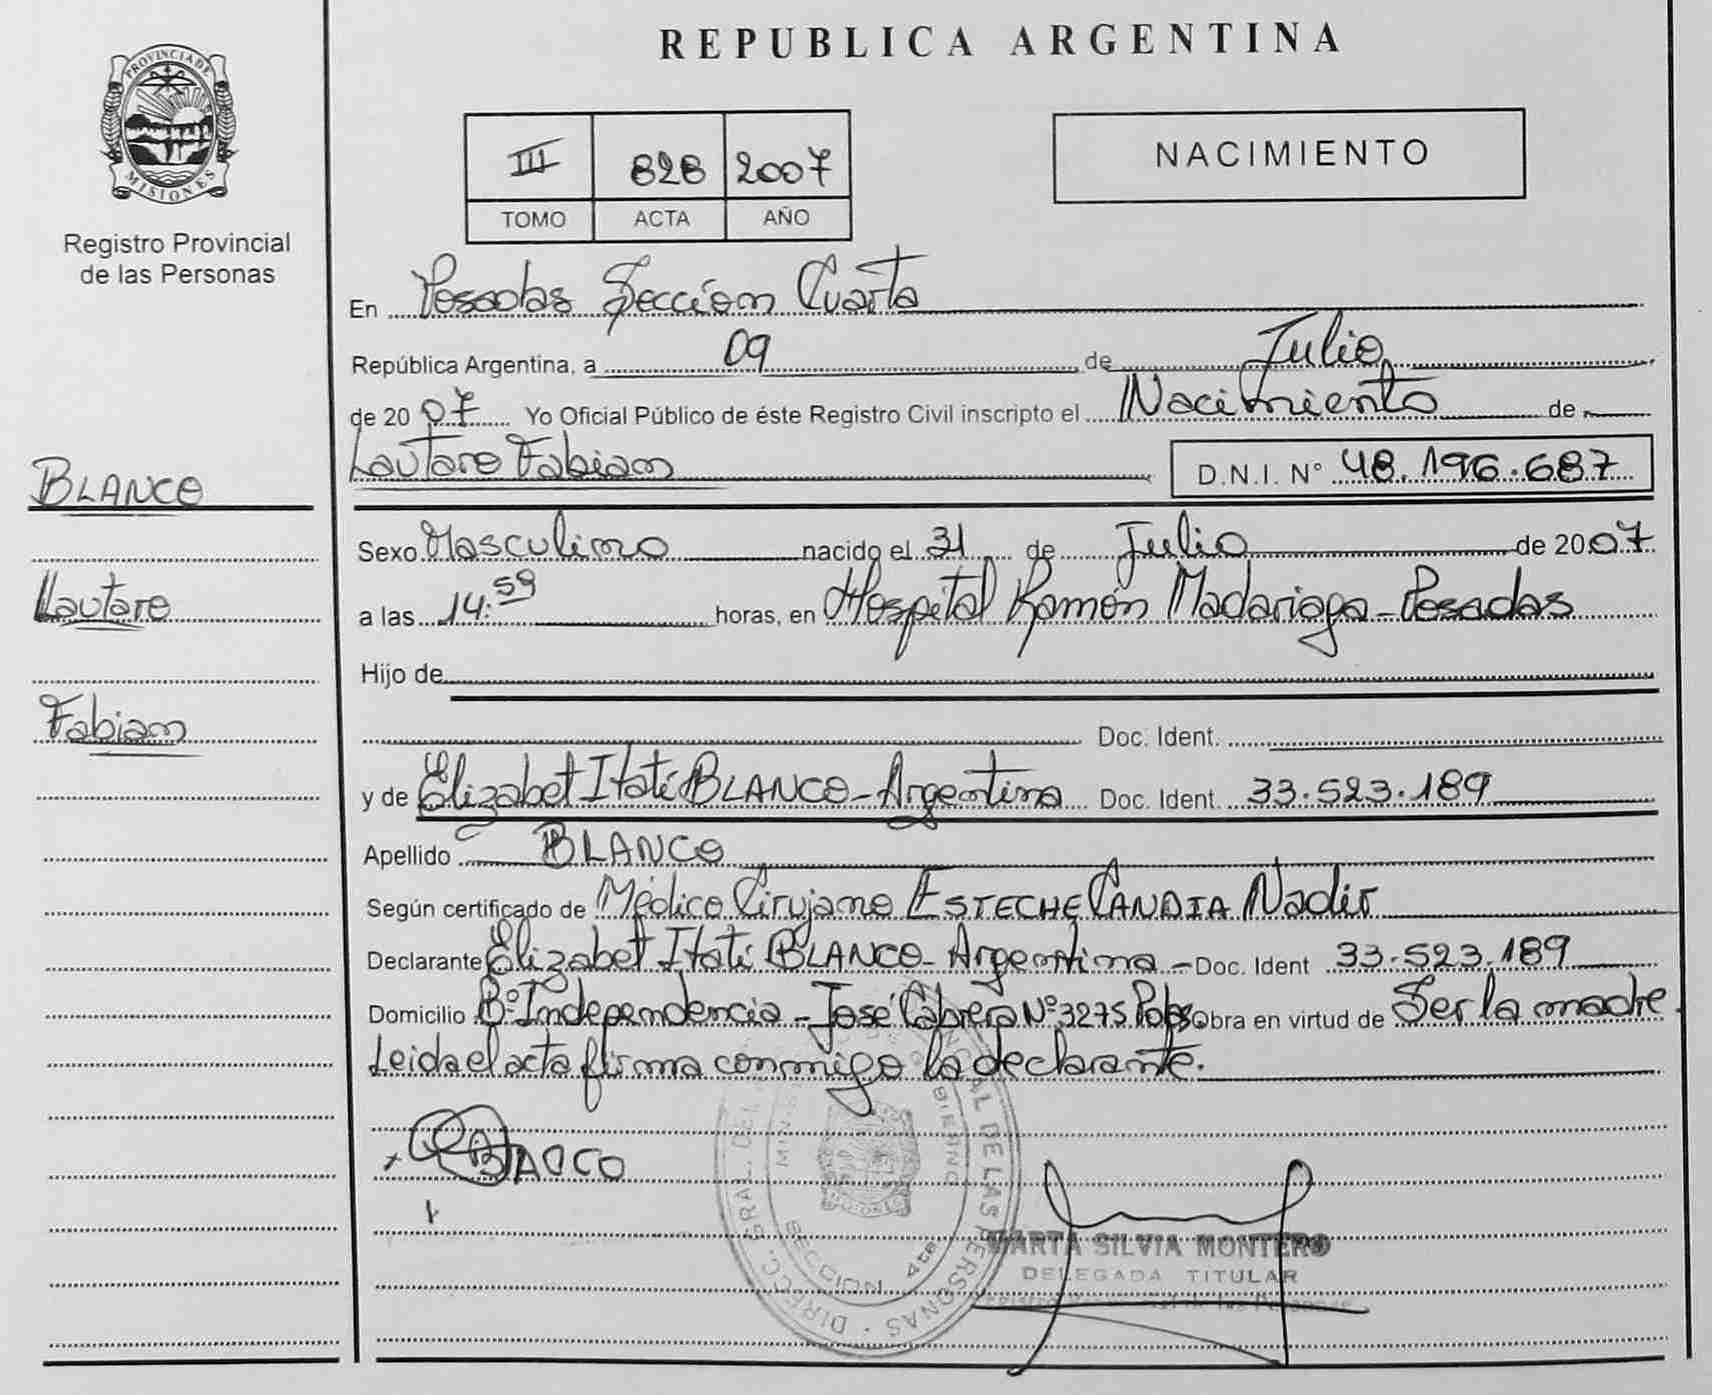 REPUBLICA ARGENTINA
PROVINCIA DE MISIONES
Registro Provincial
de las Personas
III 828 2007
TOMO ACTA AÑO
NACIMIENTO
En Posadas Sección Cuarta
República Argentina, a 09 de Julio
de 2007 Yo Oficial Público de éste Registro Civil inscripto el Nacimiento de
Lautaro Fabian D.N.I. N° 48.196.687
BLANCO
Sexo Masculino nacido el 31 de Julio de 2007
Lautaro
a las 14:59 horas, en Hospital Ramón Madariaga - Posadas
Hijo de
Fabian
Doc. Ident.
y de Elizabet Itatí BLANCO - Argentina Doc. Ident. 33.523.189
Apellido BLANCO
Según certificado de Médico Cirujano ESTECHE CANDIA Nadir
Declarante Elizabet Itatí BLANCO - Argentina - Doc. Ident 33.523.189
Domicilio B° Independencia - José Cabrera N° 3275 Pdas Obra en virtud de Ser la madre.
Leida el acta firma conmigo la declarante.
MARTA SILVIA MONTERO
DELEGADA TITULAR
SECCION 4ta